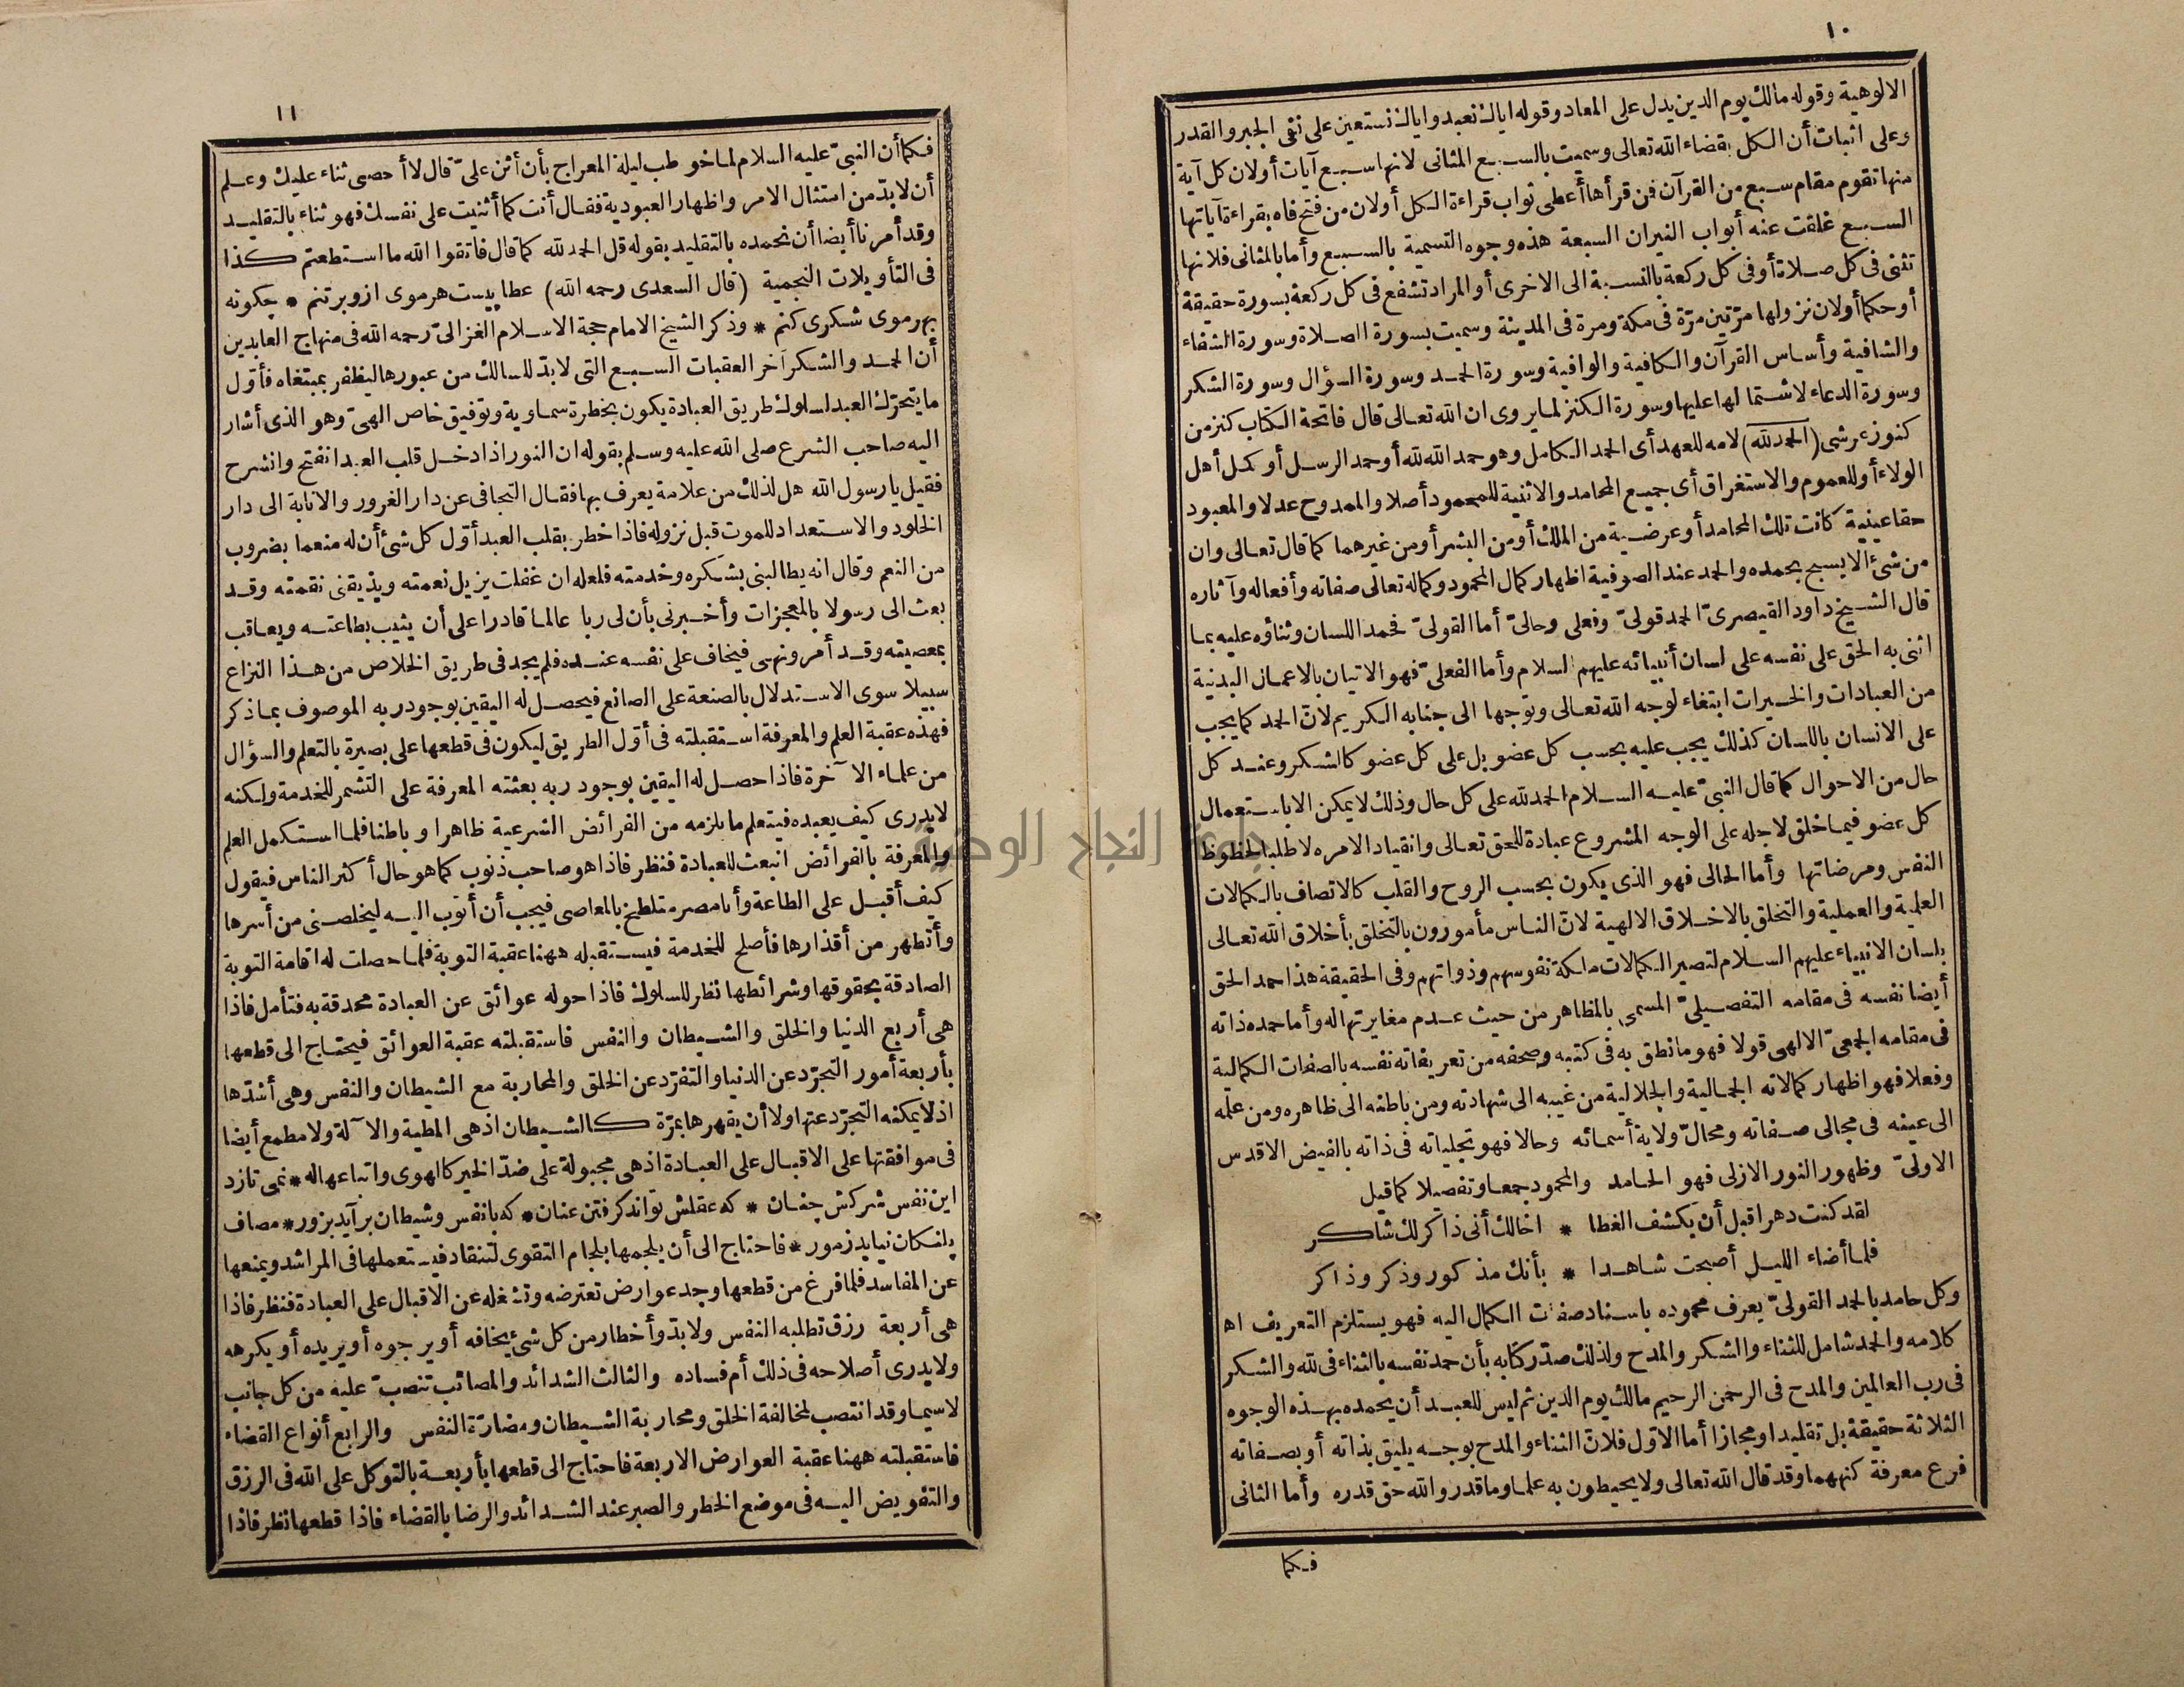 ١٠
الالوهية وقوله مالك يوم الدين يدل على المعاد وقوله اياك نعبد واياك نستعين على نفى الجبر والقدر
وعلى اثبات أن الكل بقضاء الله تعالى وسميت بالسبع المثانى لانها سبع آيات أولان كل آية
منها تقوم مقام سبع من القرآن فمن قرأها أعطى ثواب قراءة الكل أولان من فتح فاه بقراءة آياتها
السبع غلقت عنه أبواب النيران السبعة هذه وجوه التسمية بالسبع وأما بالمثانى فلانها
تثنى فى كل صلاة أوفى كل ركعة بالنسبة الى الاخرى أو المراد تشفع فى كل ركعة بسورة حقيقة
أوحكما أولان نزولها مرّتين مرّة فى مكة ومرة فى المدينة وسميت بسورة الصلاة وسورة الشفاء
والشافية وأساس القرآن والكافية والوافية وسورة الحمد وسورة السؤال وسورة الشكر
وسورة الدعاء لاشتمالها عليها وسورة الكنز لما يروى ان الله تعالى قال فاتحة الكتاب كنز من
كنوز عرشى (الحمد لله) لامه للعهد أى الحمد الكامل وهو حمد الله لله أوحمد الرسل أو كمل أهل
الولاء أوللعموم والاستغراق أى جميع المحامد والاثنية للمحمود أصلا والممدوح عدلا والمعبود
حقا عينية كانت تلك المحامد أوعرضية من الملك أومن البشر أومن غيرهما كما قال تعالى وان
من شئ الا يسبح بحمده والحمد عند الصوفية اظهار كمال المحمود وكماله تعالى صفاته وأفعاله وآثاره
قال الشيخ داود القيصرىّ الحمد قولىّ وفعلى وحالىّ أما القولىّ فحمد اللسان وثناؤه عليه بما
اثنى به الحق على نفسه على لسان أنبيائه عليهم السلام وأما الفعلىّ فهو الاتيان بالاعمال البدنية
من العبادات والخيرات ابتغاء لوجه الله تعالى وتوجها الى جنابه الكريم لانّ الحمد كما يجب
على الانسان باللسان كذلك يجب عليه بحسب كل عضو بل على كل عضو كالشكر وعند كل
حال من الاحوال كما قال النبىّ عليه السلام الحمد لله على كل حال وذلك لا يمكن الا باستعمال
كل عضو فيما خلق لاجله على الوجه المشروع عبادة للحق تعالى وانقيادا لامره لا طلبا لحظوظ
النفس ومرضاتها وأما الحالى فهو الذى يكون بحسب الروح والقلب كالاتصاف بالكمالات
العلمية والعملية والتخلق بالاخلاق الالهية لانّ الناس مأمورون بالتخلق بأخلاق الله تعالى
بلسان الانبياء عليهم السلام لتصير الكمالات ملكة نفوسهم وذواتهم وفى الحقيقة هذا حمد الحق
أيضا نفسه فى مقامه التفصيلىّ المسمى بالمظاهر من حيث عدم مغايرتها له وأما حمده ذاته
فى مقامه الجمعىّ الالهى قولا فهو ما نطق به فى كتبه وصحفه من تعريفاته نفسه بالصفات الكمالية
وفعلا فهو اظهار كمالاته الجمالية والجلالية من غيبه الى شهادته ومن باطنه الى ظاهره ومن علمه
الى عينه فى مجالى صفاته ومحالّ ولاية أسمائه وحالا فهو تجلياته فى ذاته بالفيض الاقدس
الاولىّ وظهور النور الازلى فهو الحامد والمحمود جمعا وتفصيلا كما قيل
لقد كنت دهرا قبل أن يكشف الغطا * اخالك أنى ذاكر لك شاكر
فلما أضاء الليل أصبحت شاهدا * بأنك مذكور وذكر وذاكر
وكل حامد بالحمد القولىّ يعرف محموده باسناد صفات الكمال اليه فهو يستلزم التعريف اه
كلامه والحمد شامل للثناء والشكر والمدح ولذلك صدّر كتابه بأن حمد نفسه بالثناء فى لله والشكر
فى رب العالمين والمدح فى الرحمن الرحيم مالك يوم الدين ثم ليس للعبد أن يحمده بهذه الوجوه
الثلاثة حقيقة بل تقليدا ومجازا أما الاوّل فلانّ الثناء والمدح بوجه يليق بذاته أو بصفاته
فرع معرفة كنههما وقد قال الله تعالى ولا يحيطون به علما وما قدروا الله حق قدره وأما الثانى
فكما
١١
فكما أن النبىّ عليه السلام لما خوطب ليلة المعراج بأن أثن علىّ قال لا أحصى ثناء عليك وعلم
أن لا بدّ من امتثال الامر واظهار العبودية فقال أنت كما أثنيت على نفسك فهو ثناء بالتقليد
وقد أمرنا أيضا أن نحمده بالتقليد بقوله قل الحمد لله كما قال فاتقوا الله ما استطعتم كذا
فى التأويلات النجمية (قال السعدى رحمه الله) عطاييست هرموى ازو برتنم * چكونه
بهرموى شكرى كنم * وذكر الشيخ الامام حجة الاسلام الغزالىّ رحمه الله فى منهاج العابدين
أن الحمد والشكر آخر العقبات السبع التى لا بدّ للسالك من عبورها ليظفر بمبتغاه فأوّل
ما يتحرّك العبد لسلوك طريق العبادة يكون بخطرة سماوية وتوفيق خاص الهىّ وهو الذى أشار
اليه صاحب الشرع صلى الله عليه وسلم بقوله ان النور اذا دخل قلب العبد انفتح وانشرح
فقيل يا رسول الله هل لذلك من علامة يعرف بها فقال التجافى عن دار الغرور والانابة الى دار
الخلود والاستعداد للموت قبل نزوله فاذا خطر بقلب العبد أوّل كل شئ أن له منعما بضروب
من النعم وقال انه يطالبنى بشكره وخدمته فلعله ان غفلت يزيل نعمته ويذيقنى نقمته وقد
بعث الى رسولا بالمعجزات وأخبرنى بأن لى ربا عالما قادرا على أن يثيب بطاعته ويعاقب
بمعصيته وقد أمر ونهى فيخاف على نفسه عنده فلم يجد فى طريق الخلاص من هذا النزاع
سبيلا سوى الاستدلال بالصنعة على الصانع فيحصل له اليقين بوجود ربه الموصوف بما ذكر
فهذه عقبة العلم والمعرفة استقبلته فى أوّل الطريق ليكون فى قطعها على بصيرة بالتعلم والسؤال
من علماء الآخرة فاذا حصل له اليقين بوجود ربه بعثته المعرفة على التشمر للخدمة ولكنه
لا يدرى كيف يعبده فيتعلم ما يلزمه من الفرائض الشرعية ظاهرا وباطنا فلما استكمل العلم
والمعرفة بالفرائض انبعث للعبادة فنظر فاذا هو صاحب ذنوب كما هو حال أكثر الناس فيقول
كيف أقبل على الطاعة وأنا مصر متلطخ بالمعاصى فيجب أن أتوب اليه ليخلصنى من أسرها
وأتطهر من أقذارها فأصلح للخدمة فيستقبله ههنا عقبة التوبة فلما حصلت له اقامة التوبة
الصادقة بحقوقها وشرائطها نظر للسلوك فاذا حوله عوائق عن العبادة محدقة به فتأمل فاذا
هى أربع الدنيا والخلق والشيطان والنفس فاستقبلته عقبة العوائق فيحتاج الى قطعها
بأربعة أمور التجرّد عن الدنيا والتفرّد عن الخلق والمحاربة مع الشيطان والنفس وهى أشدّها
اذ لا يمكنه التجرّد عنها ولا أن يقهرها بمرّة كالشيطان اذ هى المطية والآلة ولا مطمع أيضا
فى موافقتها على الاقبال على العبادة اذ هى مجبولة على ضدّ الخير كالهوى واتباعها له * نمى تازد
اين نفس سركش چنان * كه عقلش تواند كرفتن عنان * كه با نفس وشيطان برآيد بزور * مصاف
پلنكان نيايد زمور * فاحتاج الى أن يلجمها بلجام التقوى لتنقاد فيستعملها فى المراشد ويمنعها
عن المفاسد فلما فرغ من قطعها وجد عوارض تعترضه وتشغله عن الاقبال على العبادة فنظر فاذا
هى أربعة رزق تطلبه النفس ولا بدّ وأخطار من كل شئ يخافه أو يرجوه أو يريده أو يكرهه
ولا يدرى أصلاحه فى ذلك أم فساده والثالث الشدائد والمصائب تنصبّ عليه من كل جانب
لا سيما وقد انتصب لمخالفة الخلق ومحاربة الشيطان ومضارّة النفس والرابع أنواع القضاء
فاستقبلته ههنا عقبة العوارض الاربعة فاحتاج الى قطعها بأربعة بالتوكل على الله فى الرزق
والتفويض اليه فى موضع الخطر والصبر عند الشدائد والرضا بالقضاء فاذا قطعها نظر فاذا
النجاح الوطنية